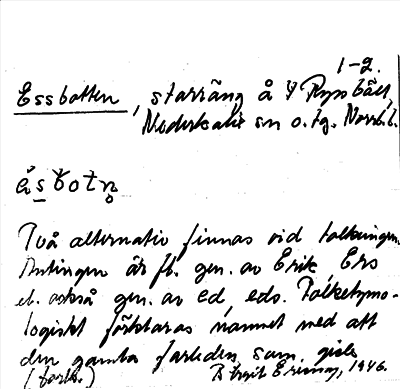 1-2.
Essbotten, starräng å Rysbält,
Nederkalix sn o. tg. Norrb. l.
ås̲botn̥
Två alternativ finnas vid tolkningen.
Antingen är f. l. gen. av Erik, Ers
el. också gen. av ed, eds. Folketymo-
logiskt förklaras namnet med att
den gamla farleden som gick
(forts.) Birgit Ersing, 1946.